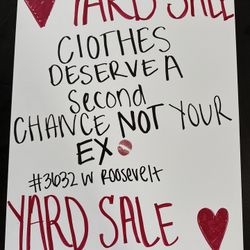 YARD SALE
CLOTHES
DESERVE A
Second
CHANCE NOT YOUR
EX
#3632 W Roosevelt
YARD SALE